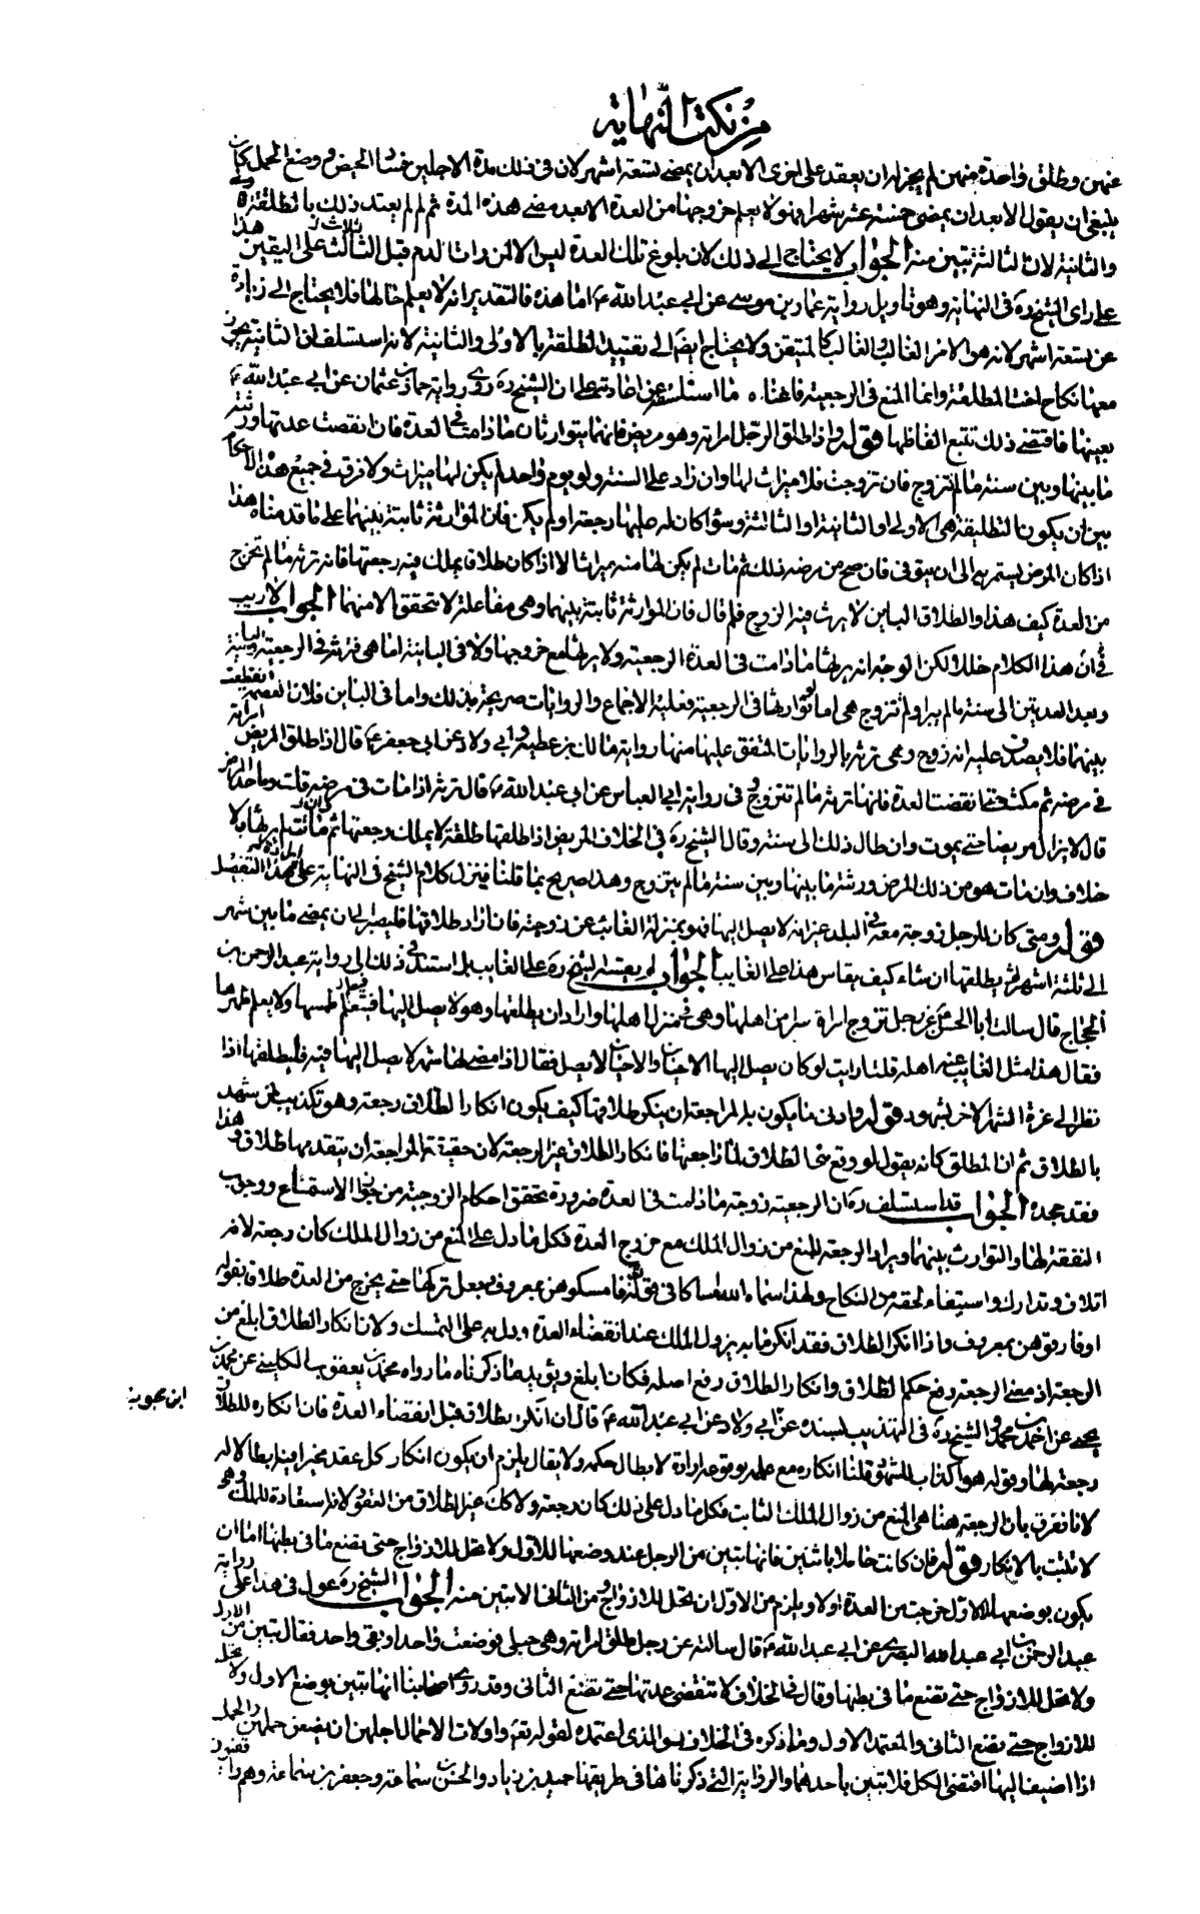 من نكت النهاية
عنهن وطلق واحدة منهن لم يجز له ان يعقد على اخرى الا بعد ان يمضى تسعة اشهر لان فى ذلك مدة الاجلين فساد الحيض ووضع الحمل كان
ينبغى ان يقول الا بعد ان يمضى خمسة عشر شهرا فهو لا يعلم خروجها من العدة الا بعد مضى هذه المدة ثم لم لم يعتد ذلك بالتطليقة
والثانية لان الثالثة تبين منه الجواب لا يحتاج الى ذلك لان بلوغ تلك العدة ليس الا لمن رات الدم قبل الثالث على اليقين هذا
على راى الشيخ ره فى النهاية وهو تاويل رواية عمار بن موسى عن ابى عبد الله ع اما هذه فالتقدير انه لا يعلم حالها فلا يحتاج الى زيادة
عن تسعة اشهر لانه هو الامر الغالب والغالب كالمتيقن ولا يحتاج ايضا الى تقييد الطلقة بالاولى والثانية لانه استسلف ان الثانية يجوز
معها نكاح اخت المطلقة وانما المنع فى الرجعية فاغناه ما اسلفه عن اعادته على ان الشيخ ره روى رواية حماد بن عثمان عن ابى عبد الله ع
بعينها فاقتضى ذلك تتبع الفاظها قوله واذا طلق الرجل امراته وهو مريض فانهما يتوارثان ما دامت فى العدة فان انقضت عدتها ورثته
ما بينها وبين سنة ما لم تتزوج فان تزوجت فلا ميراث لها وان زاد على السنة ولو يوم واحد لم يكن لها ميراث ولا فرق فى جميع هذه الاحكام
بين ان يكون التطليقة هى الاولى او الثانية او الثالثة وسواء كان له عليها رجعة او لم يكن فان الموارثة ثابتة بينهما على ما قدمناه هذا
اذا كان المرض يستمر به الى ان يتوفى فان صح من مرضه ذلك ثم مات لم يكن لها منه ميراث الا اذا كان طلاق يملك فيه رجعتها فانه ترثه ما لم تخرج
من العدة كيف هذا والطلاق الباين لا يرث فيه الزوج فلم قال فان الموارثة ثابتة بينهما وهى مفاعلة لا تتحقق الا منهما الجواب لا ريب
فى ان هذا الكلام خللا لكن الوجه انه يرثها ما دامت فى العدة الرجعية ولا يرثها مع خروجها ولا فى الباينة اما هى فترثه فى الرجعية والباينة
وبعد العدتين الى سنة ما لم يبرا ولم تتزوج هى اما توارثهما فى الرجعية فعليه الاجماع والروايات صريحة بذلك واما فى الباين فلان العصمة انقطعت
بينهما فلا يصدق عليه انه زوج وهى ترثه بالروايات المتفق عليها منها رواية مالك بن عطية وابى ولاد عن ابى جعفر ع قال اذا طلق المريض امراته
فى مرضه ثم مكث حتى انقضت العدة فانها ترثه ما لم تتزوج وفى رواية ابى العباس عن ابى عبد الله ع قال ترثه اذا مات فى مرضه قلت وما حد المرض
قال لا يزال مريضا حتى يموت وان طال ذلك الى سنة وقال الشيخ ره فى الخلاف المريض اذا طلقها طلقة لا يملك رجعتها ثم ماتت لم يرثها بلا
خلاف وان مات هو من ذلك المرض ورثته ما بينها وبين سنة ما لم تتزوج وهذا صريح بما قلنا فينزل كلام الشيخ فى النهاية على هذا التفصيل
قوله ومتى كان للرجل زوجة معه فى البلد غير انه لا يصل اليها فهو بمنزلة الغائب عن زوجته فان اراد طلاقها فليصبر الى ان يمضى ما بين شهر
الى ثلثة اشهر ثم يطلقها ان شاء كيف يقاس هذا على الغايب الجواب لم يقسه الشيخ ره على الغايب بل استند فى ذلك الى رواية عبد الرحمن بن
الحجاج قال سالت ابا الحسن ع عن رجل تزوج امراة سرا من اهلها وهى فى منزل اهلها واراد ان يطلقها وهو لا يصل اليها فيعلم طمثها ولا يعلم طهرها
فقال هذا مثل الغايب عن اهله قلت ارايت لو كان يصل اليها الاحيان والاحيان لا يصل فقال اذا مضى لها شهر لا يصل اليها فيه فليطلقها اذا
نظر الى غرة الشهر الاخر بشهود قوله وادنى ما يكون به المراجعة ان ينكر طلاقها كيف يكون انكار الطلاق رجعة وهو تكذيب لمن شهد
بالطلاق ثم ان المطلق كانه يقول لو وقع منى الطلاق لما راجعتها فانكار الطلاق غير الرجعة لان حقيقة المراجعة ان يتقدمها طلاق وهذا
فقد جحده الجواب قد استسلف ره ان الرجعية زوجته ما دامت فى العدة ضرورة تحقق احكام الزوجية من جواز الاستمتاع ووجوب
النفقة لها والتوارث بينهما ويراد الرجعة للمنع من زوال الملك مع خروج العدة فكل ما دل على المنع من زوال الملك كان رجعة لا مر
اتلاف وتدارك واستبقاء لحقه من النكاح ولهذا سماه الله امساكا فى قوله فامسكوهن بمعروف فجعل تركها حتى يخرج من العدة طلاق بقوله
او فارقوهن بمعروف واذا انكر الطلاق فقد انكر ما به يزول الملك عند انقضاء العدة ودل به على التمسك ولان انكار الطلاق ابلغ من
الرجعة اذ معنى الرجعة رفع حكم الطلاق وانكار الطلاق رفع اصله فكان ابلغ ويؤيد ما ذكرناه ما رواه محمد بن يعقوب الكلينى عن محمد بن
يحيى عن احمد بن محمد والشيخ ره فى التهذيب بسنده عن ابى ولاد عن ابى عبد الله ع قال ان انكر الطلاق قبل انقضاء العدة فان انكاره للطلاق
ابن محبوب
رجعة لها وقوله هو اكذاب للشهود قلنا انكاره مع علمه بوقوعه ارادة لابطال حكمه ولا يقال يلزم ان يكون انكار كل عقد مخير فيه ابطالا له
لانا نفرق بان الرجعة هنا هى المنع من زوال الملك الثابت فكل ما دل على ذلك كان رجعة ولا كك غير الطلاق من العقود لانه استفادة للملك وهو
لا تثبت بالانكار قوله فان كانت حاملا باثنين فانها تبين من الرجل عند وضعها للاول ولا تحل للازواج حتى تضع ما فى بطنها اما ان
يكون بوضعها للاول خرجت من العدة او لا ويلزم من الاول ان تحل للازواج ومن الثانى الا تبين منه الجواب الشيخ ره عول فى هذا على رواية
عبد الرحمن بن ابى عبد الله البصرى عن ابى عبد الله ع قال سالته عن رجل طلق امراته وهى حبلى فوضعت واحدا وبقى واحد فقال تبين من الاول
ولا تحل للازواج حتى تضع ما فى بطنها وقال فى الخلاف لا تنقضى عدتها حتى تضع الثانى وقد روى اصحابنا انها تبين بوضع الاول ولا تحل
للازواج حتى تضع الثانى والمعتمد الاول وما ذكره فى الخلاف هو الذى اعتمده لقوله تعالى واولات الاحمال اجلهن ان يضعن حملهن والحمل
اذا اضيف اليها اقتضى الكل فلا تبين باحدهما والرواية التى ذكرناها فى طريقها حميد بن زياد والحسن بن سماعة وجعفر بن سماعة وهم واقفيون